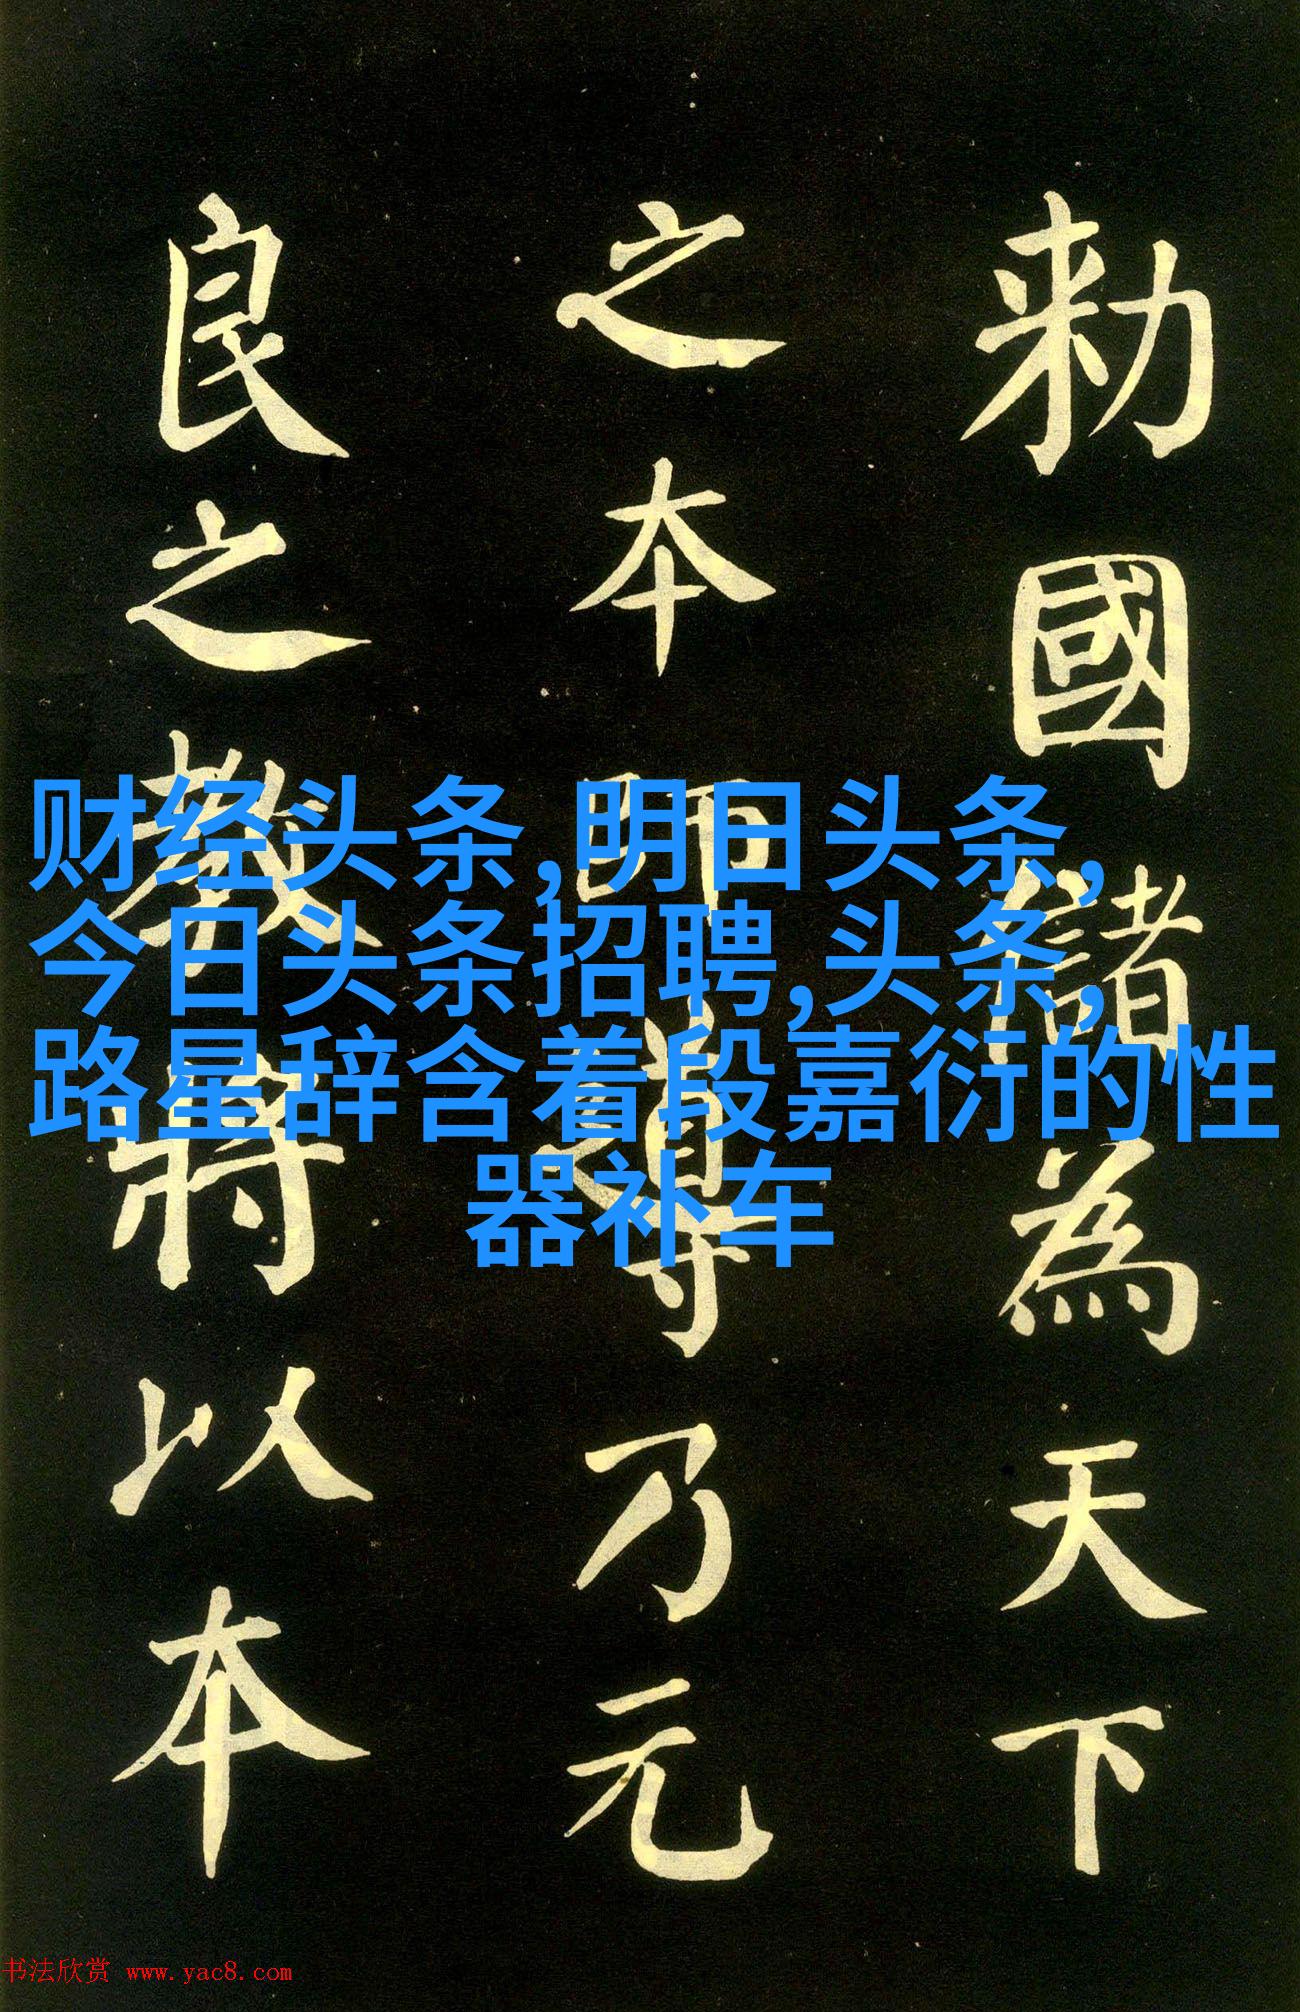 勑國儲為天下
之本師導乃元
良之教將以本
财经头条,明日头条,
今日头条招聘,头条,
路星辞含着段嘉衍的性
器补车
书法欣赏 www.yac8.com